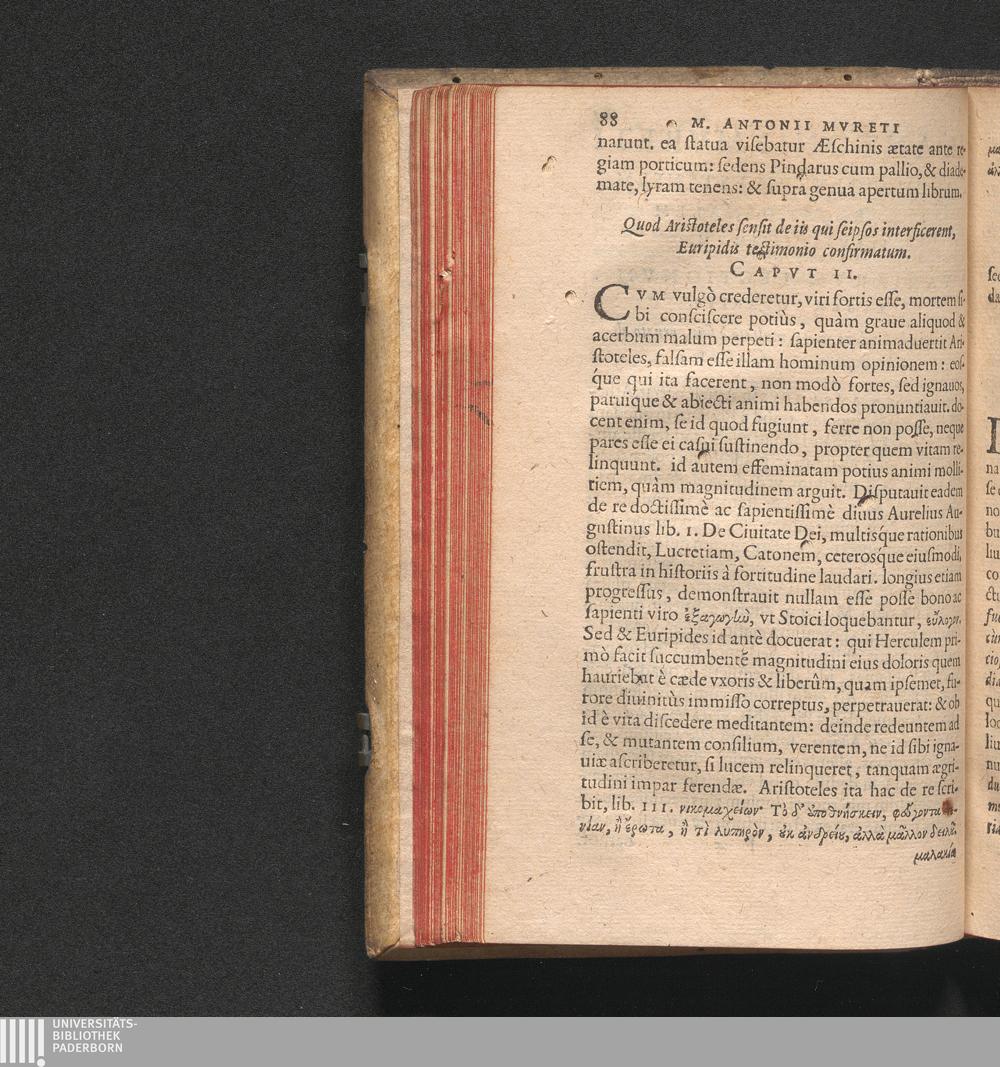 88 M. ANTONII MVRETI
narunt. ea ſtatua viſebatur Æſchinis ætate ante re-
giam porticum: ſedens Pindarus cum pallio, & diade-
mate, lyram tenens: & ſupra genua apertum librum.
Quod Ariſtoteles ſenſit de iis qui ſeipſos interficerent,
Euripidis teſtimonio confirmatum.
CAPVT II.
CVM vulgò crederetur, viri fortis eſſe, mortem ſi-
bi conſciſcere potiùs, quàm graue aliquod &
acerbum malum perpeti: ſapienter animaduertit Ari-
ſtoteles, falſam eſſe illam hominum opinionem: eoſ-
que qui ita facerent, non modò fortes, ſed ignauos,
paruique & abiecti animi habendos pronuntiauit. do-
cent enim, ſe id quod fugiunt, ferre non poſſe, neque
pares eſſe ei caſui ſuſtinendo, propter quem vitam re-
linquunt. id autem effeminatam potius animi molli-
tiem, quàm magnitudinem arguit. Diſputauit eadem
de re doctiſſimè ac ſapientiſſimè diuus Aurelius Au-
guſtinus lib. 1. De Ciuitate Dei, multiſque rationibus
oſtendit, Lucretiam, Catonem, ceteroſque eiuſmodi,
fruſtra in hiſtoriis à fortitudine laudari. longius etiam
progreſſus, demonſtrauit nullam eſſe poſſe bono ac
ſapienti viro ἐξαγωγὴν, vt Stoici loquebantur, εὔλογον.
Sed & Euripides id antè docuerat: qui Herculem pri-
mò facit ſuccumbentẽ magnitudini eius doloris quem
hauriebat è cæde vxoris & liberûm, quam ipſemet, fu-
rore diuinitùs immiſſo correptus, perpetrauerat: & ob
id è vita diſcedere meditantem: deinde redeuntem ad
ſe, & mutantem conſilium, verentem, ne id ſibi igna-
uiæ aſcriberetur, ſi lucem relinqueret, tanquam ægri-
tudini impar ferendæ. Ariſtoteles ita hac de re ſcri-
bit, lib. III. νικομαχείων· Τὸ δ' ἀποθνήσκειν, φεύγοντα
νίαν, ἢ ἔρωτα, ἢ τὶ λυπηρὸν, οὐκ ἀνδρείου, ἀλλὰ μᾶλλον δειλοῦ.
μαλακία
UNIVERSITÄTS-
BIBLIOTHEK
PADERBORN